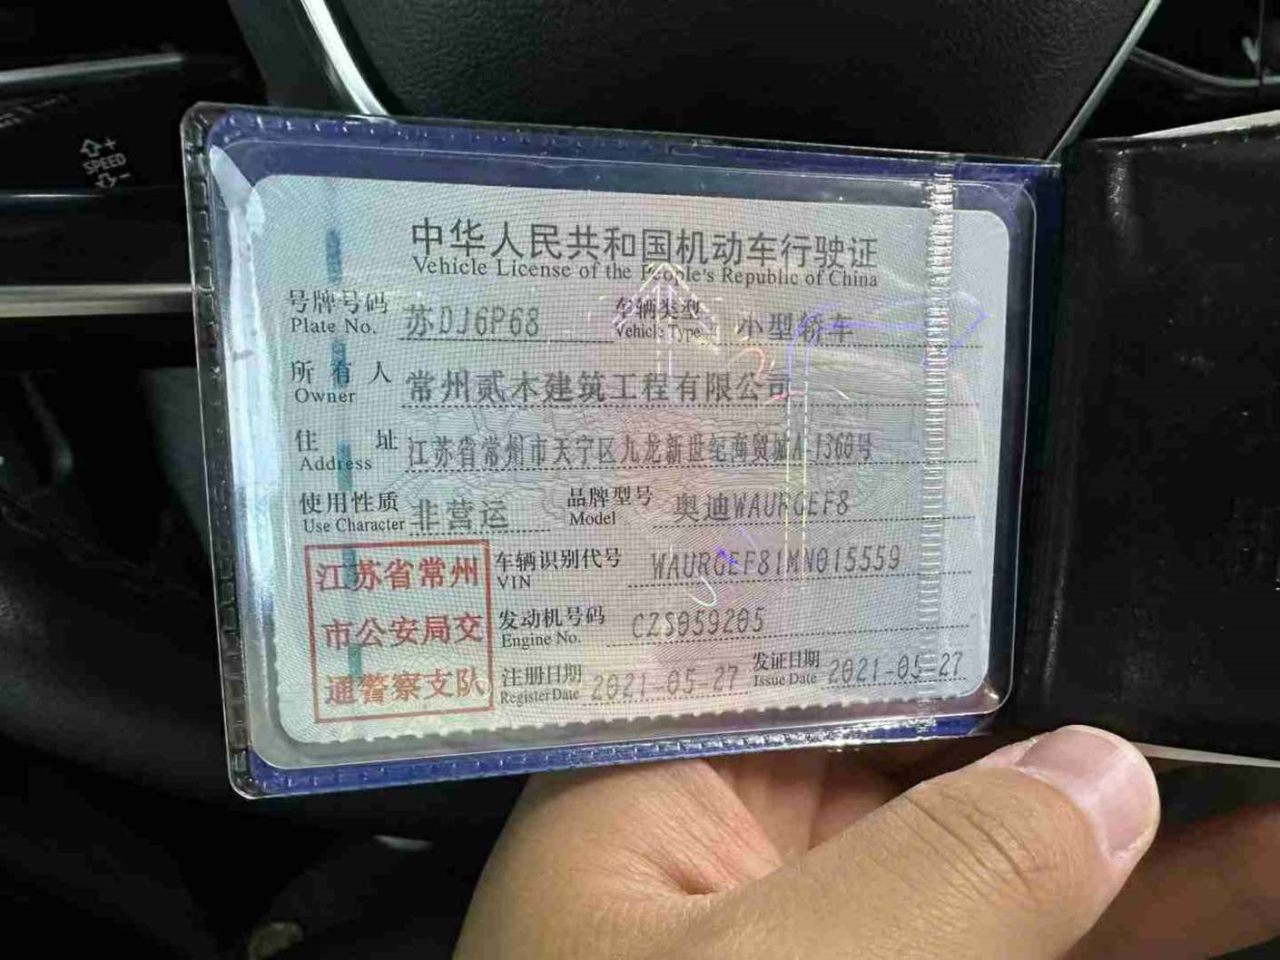 SPEED
中华人民共和国机动车行驶证
Vehicle License of the People's Republic of China
号牌号码 苏DJ6P68 车辆类型 小型轿车
Plate No. Vehicle Type
所有人 常州贰木建筑工程有限公司
Owner
住址 江苏省常州市天宁区九龙新世纪商贸城A-1360号
Address
使用性质 非营运 品牌型号 奥迪WAURGEF8
Use Character Model
江苏省常州 车辆识别代号 WAURGEF81MN015559
VIN
市公安局交 发动机号码 CZS059205
Engine No.
通警察支队 注册日期 2021-05-27 发证日期 2021-05-27
Register Date Issue Date